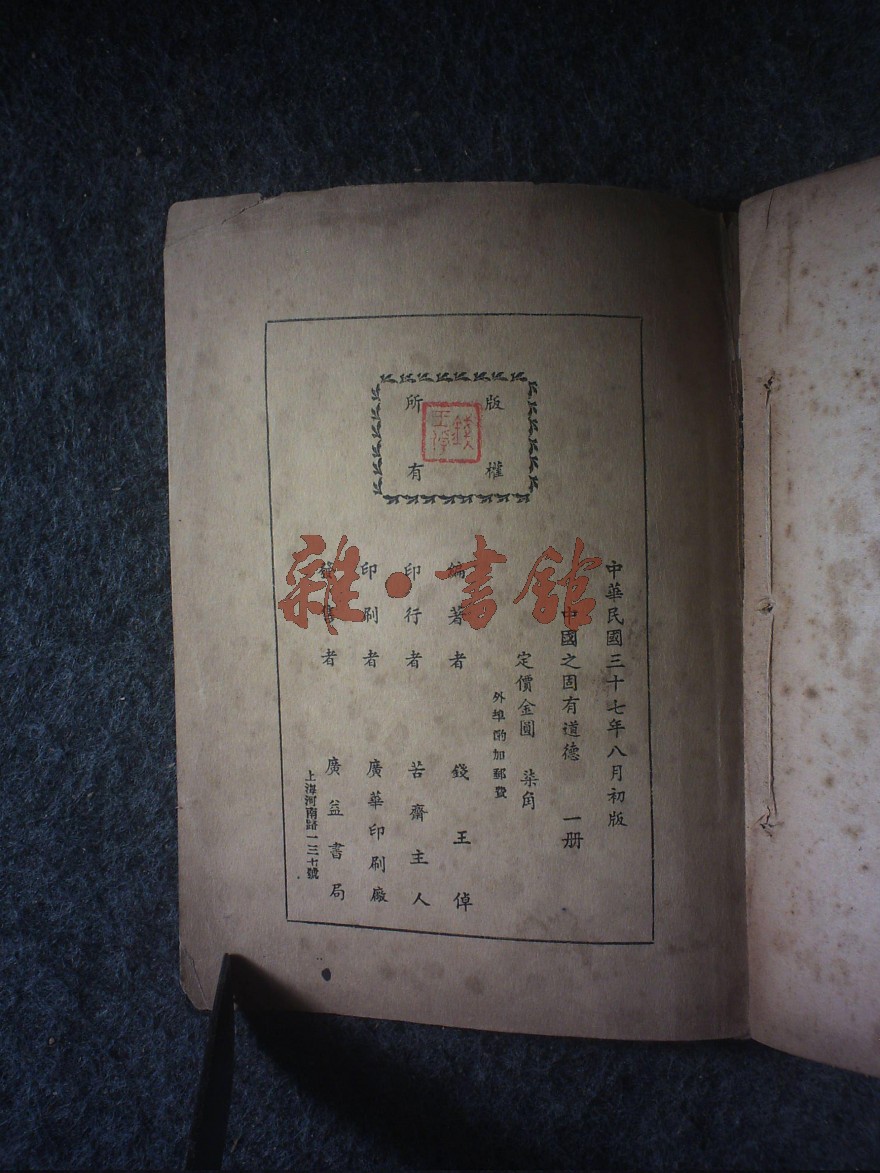 版權
所有
錢王倬
中華民國三十七年八月初版
中國之固有道德 一册
定價金圓 柒角
外埠酌加郵費
編著者 錢王倬
印行者 苦齋主人
印刷者 廣華印刷廠
發售者 廣益書局
上海河南路一三七號
雜·書館